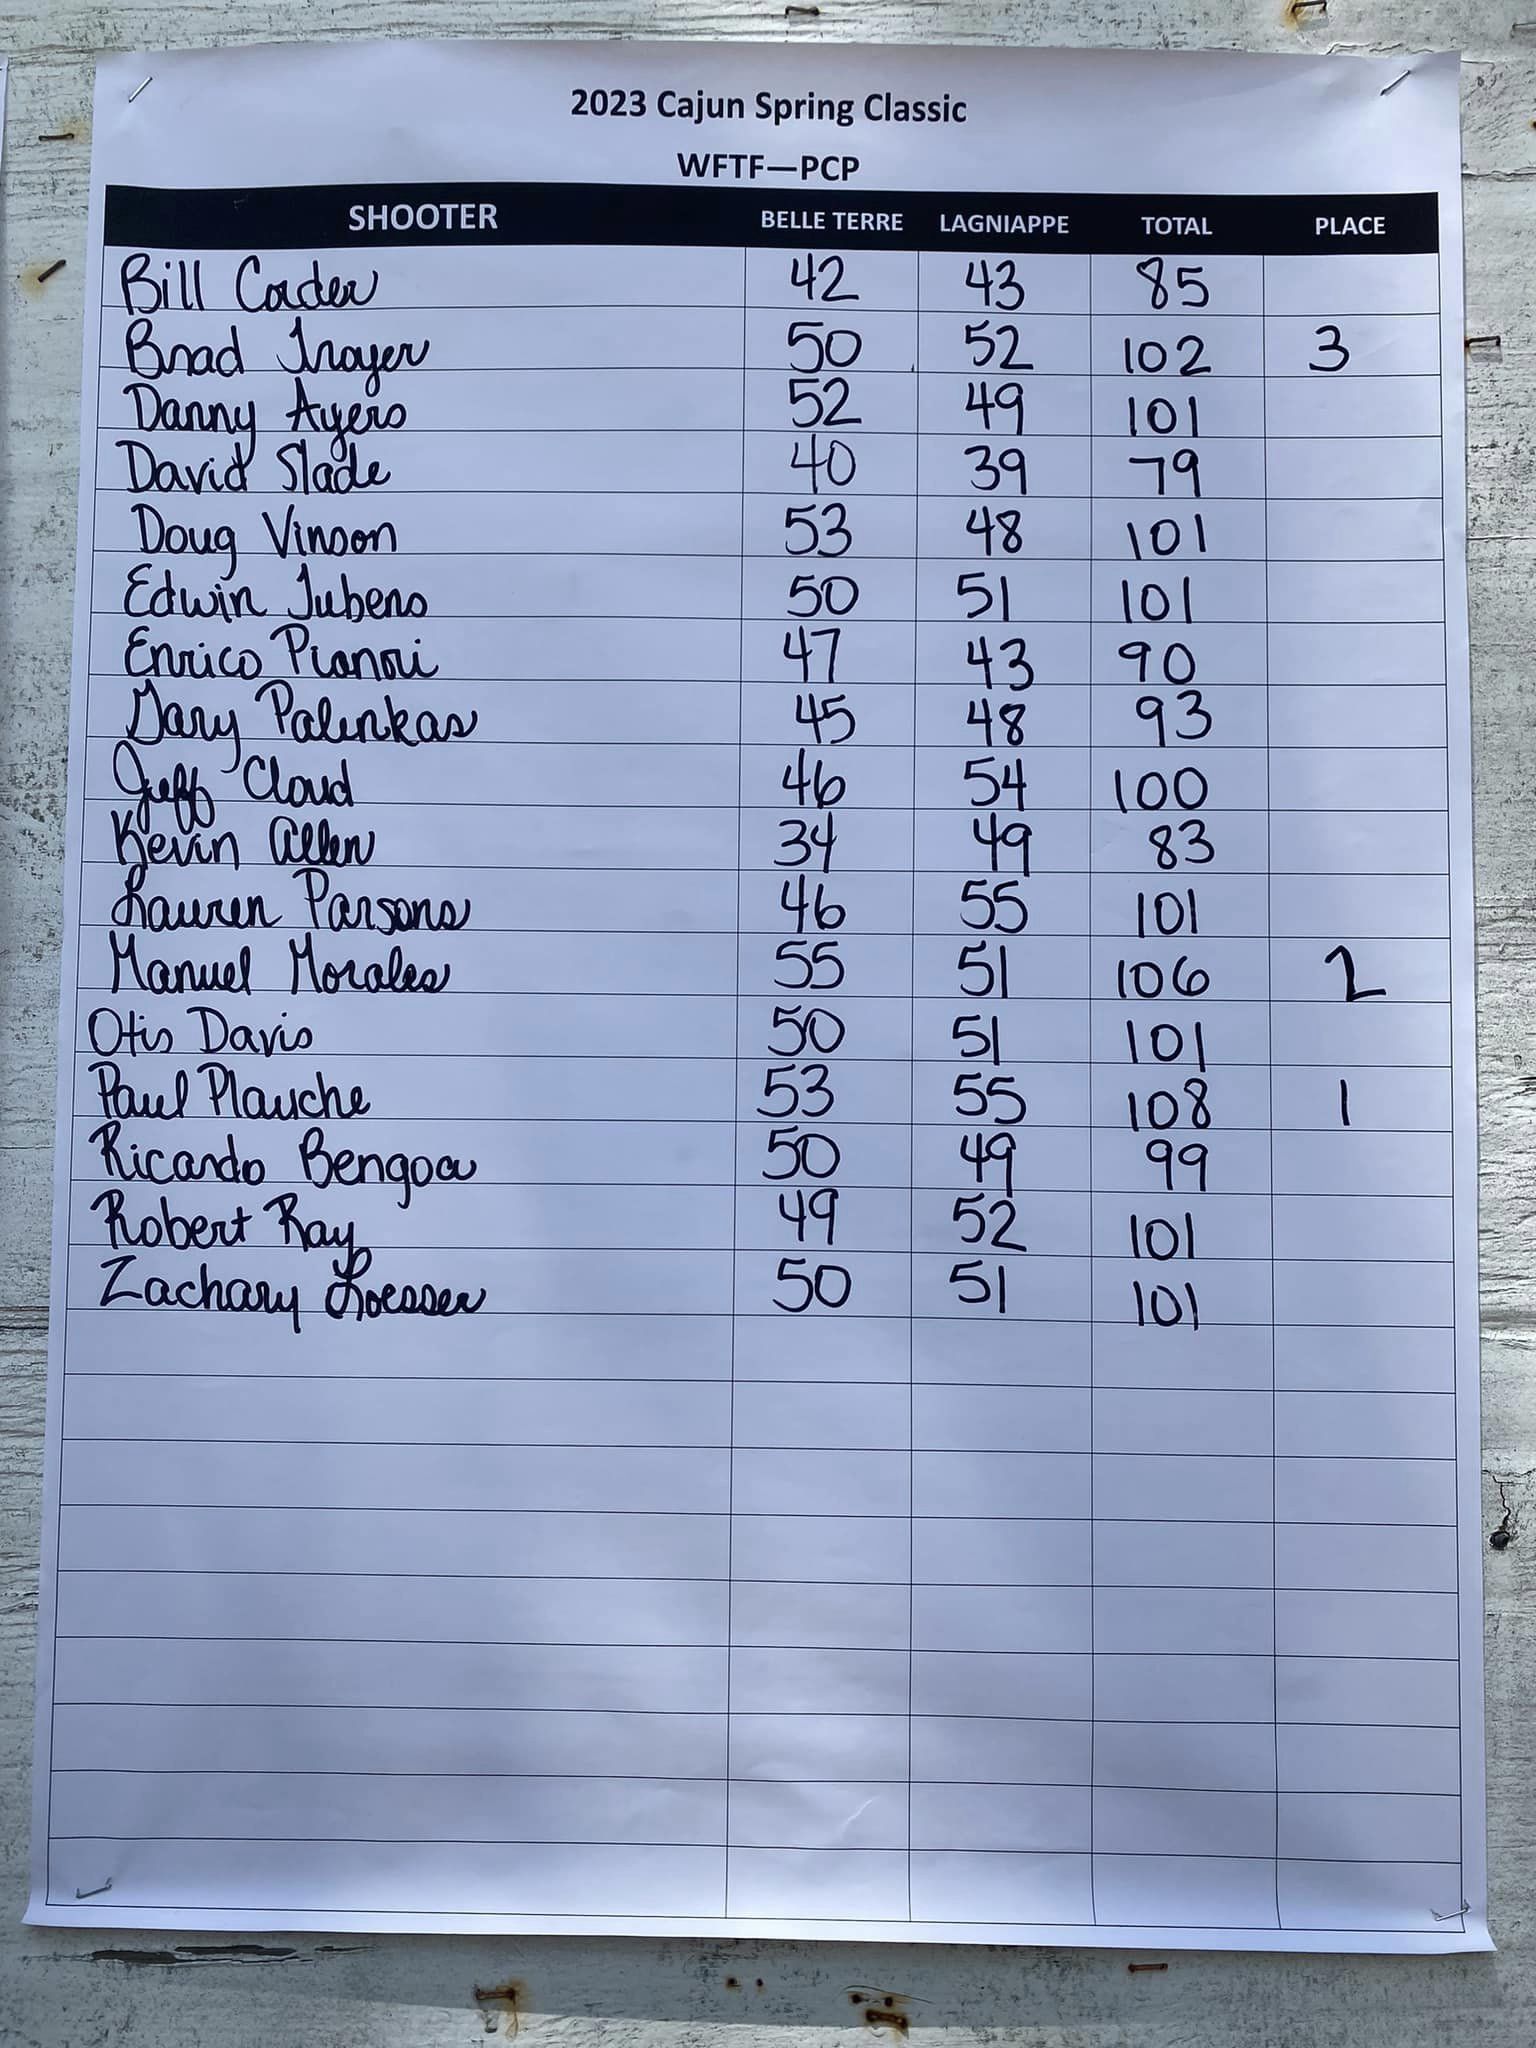 2023 Cajun Spring Classic
WFTF—PCP
SHOOTER BELLE TERRE LAGNIAPPE TOTAL PLACE
Bill Corder 42 43 85
Brad Troyer 50 52 102 3
Danny Ayers 52 49 101
David Slade 40 39 79
Doug Vinson 53 48 101
Edwin Jubens 50 51 101
Enrico Pianori 47 43 90
Gary Palinkas 45 48 93
Jeff Cloud 46 54 100
Kevin Allen 34 49 83
Lauren Parsons 46 55 101
Manuel Morales 55 51 106 2
Otis Davis 50 51 101
Paul Plauche 53 55 108 1
Ricardo Bengoa 50 49 99
Robert Ray 49 52 101
Zachary Loesser 50 51 101